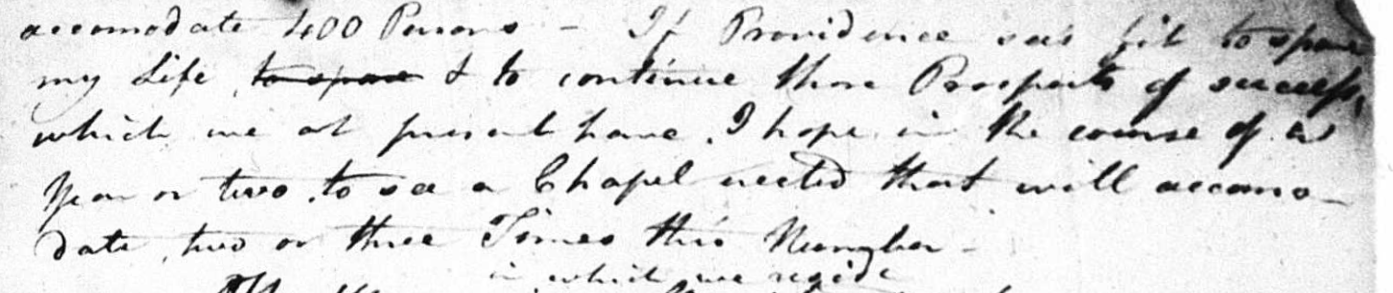 accomodate 400 Persons - If Providence sees fit to spare
my Life to spare & to continue those Prospects of success,
which we at present have, I hope in the course of a
Year or two, to see a Chapel erected that will accomo-
date, two or three Times this Number -
in which we reside